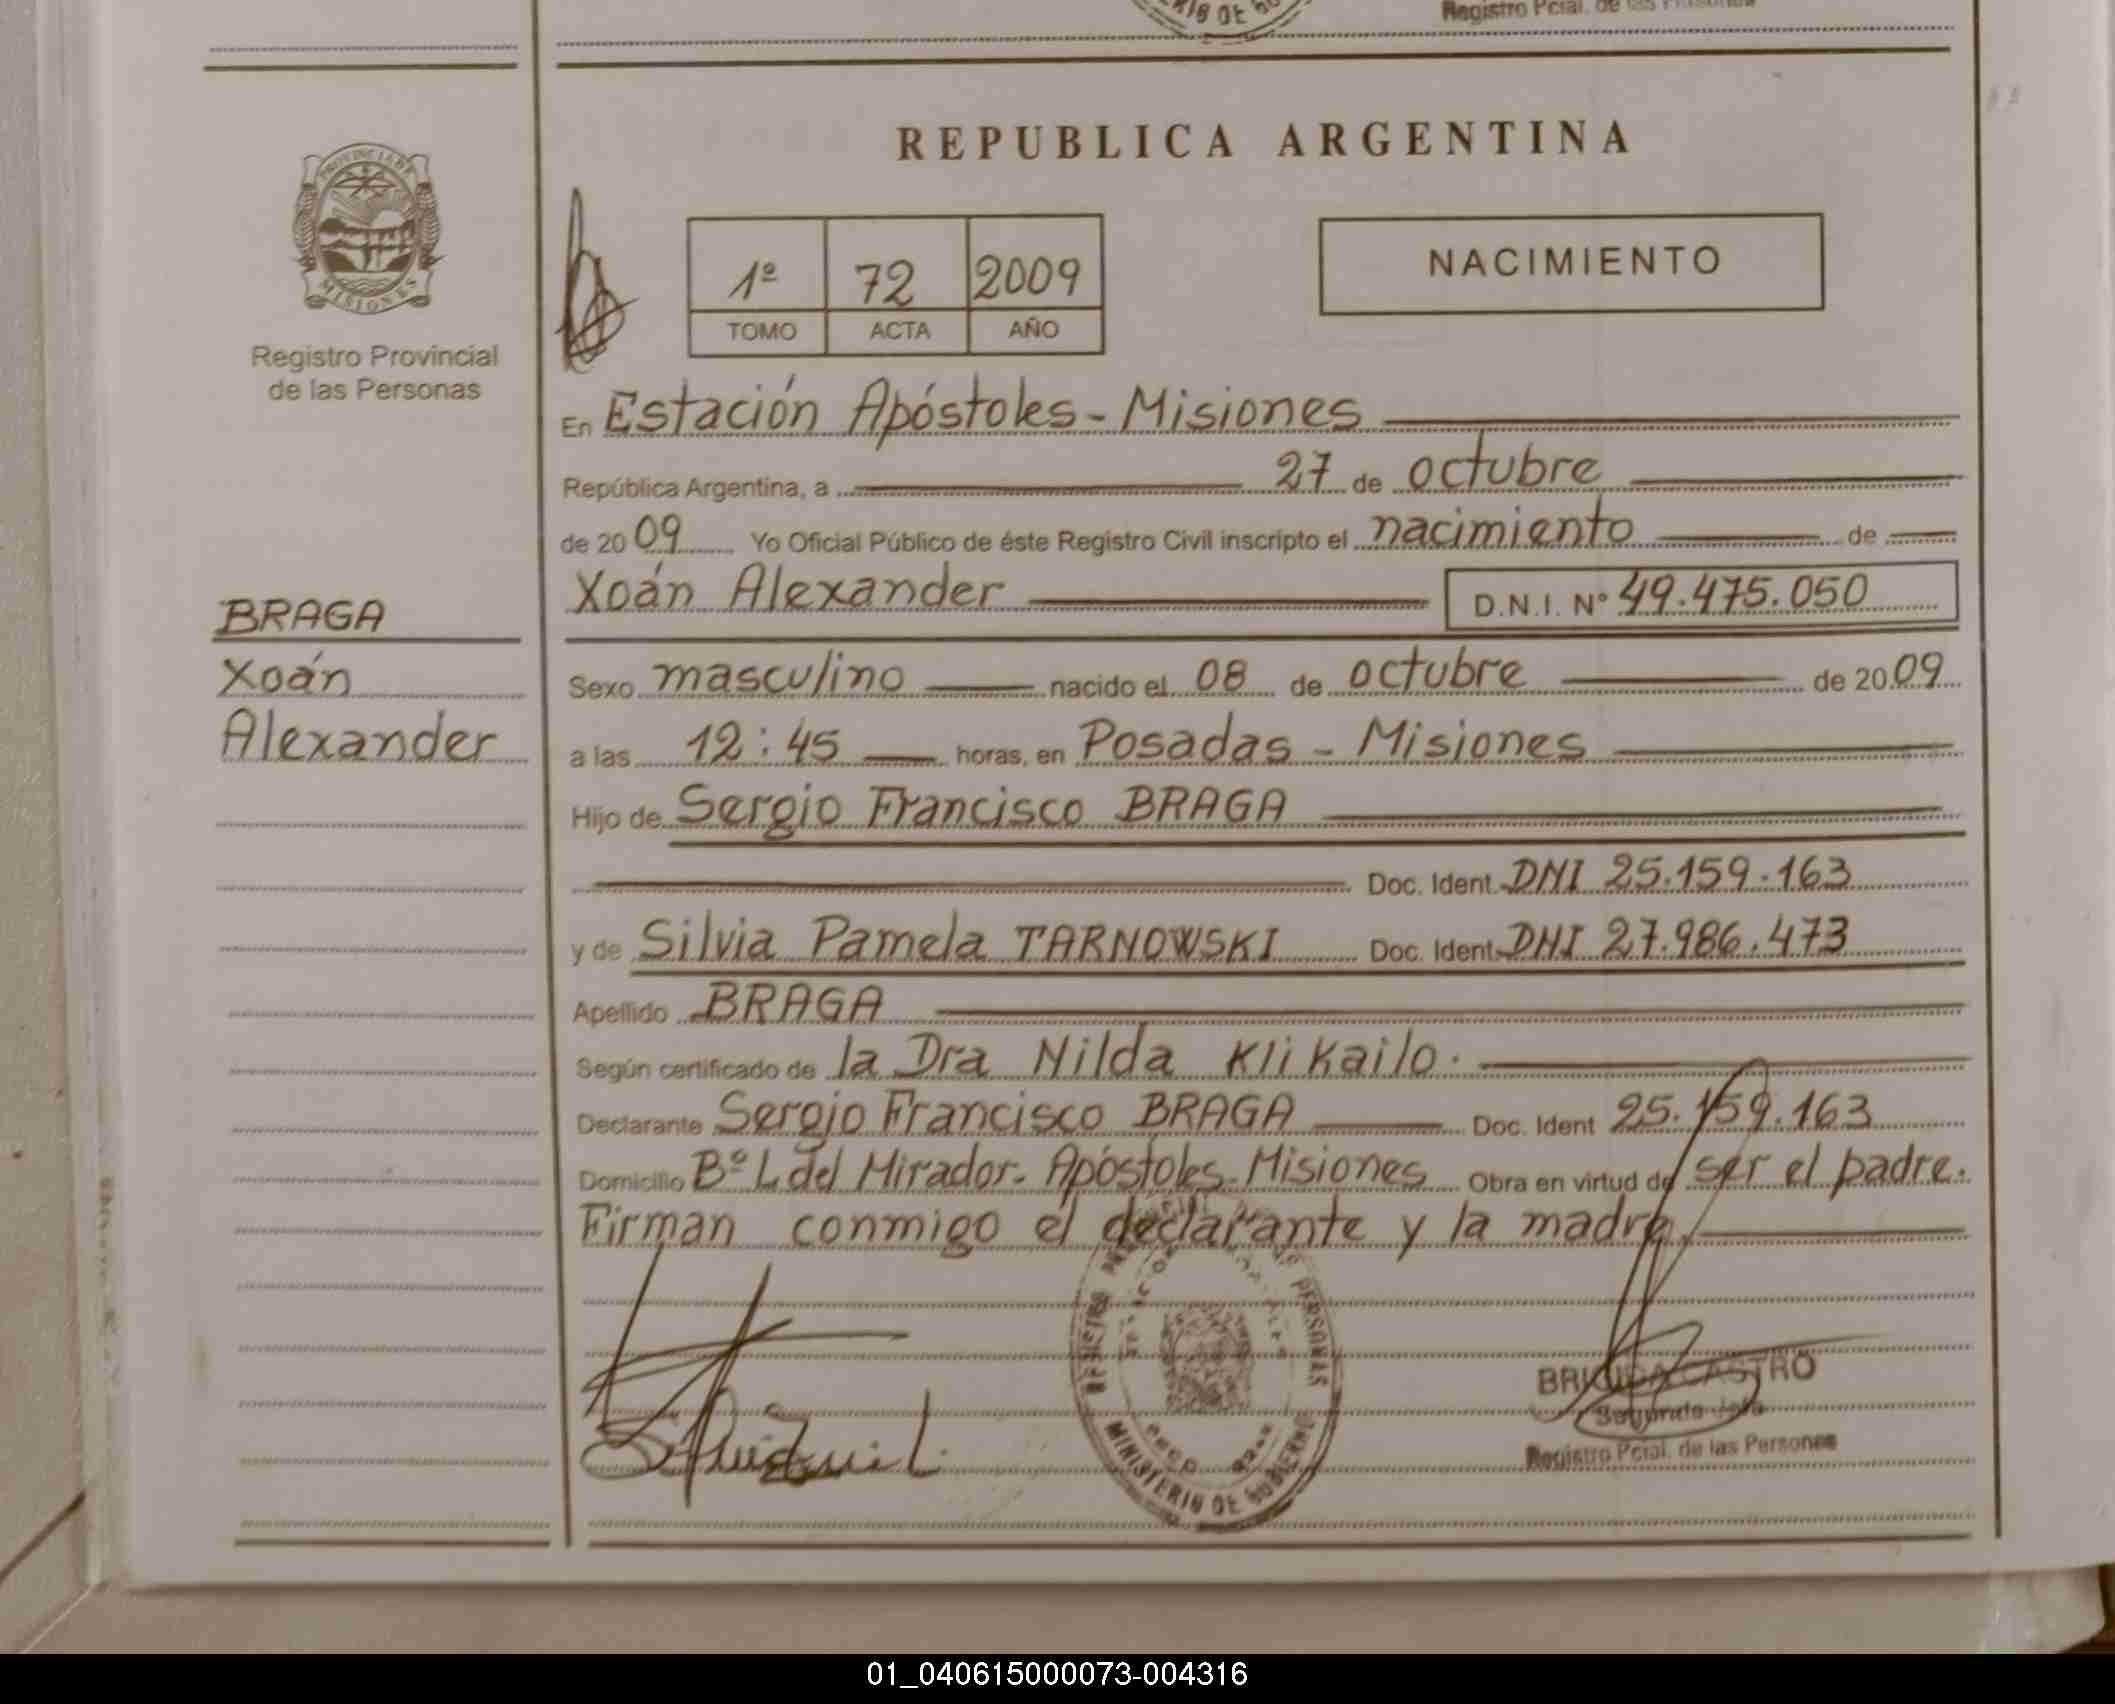 Registro Pcial. de las Personas
REPUBLICA ARGENTINA
PROVINCIA DE
MISIONES
Registro Provincial
de las Personas
1º 72 2009
TOMO ACTA AÑO
NACIMIENTO
En Estación Apóstoles - Misiones
República Argentina, a 27 de octubre
de 2009 Yo Oficial Público de éste Registro Civil inscripto el nacimiento de
Xoán Alexander D.N.I. Nº 49.475.050
BRAGA
Xoán
Alexander
Sexo masculino nacido el 08 de octubre de 2009
a las 12:45 horas, en Posadas - Misiones
Hijo de Sergio Francisco BRAGA
Doc. Ident. DNI 25.159.163
y de Silvia Pamela TARNOWSKI Doc. Ident. DNI 27.986.473
Apellido BRAGA
Según certificado de la Dra Nilda Klikailo.
Declarante Sergio Francisco BRAGA Doc. Ident 25.159.163
Domicilio Bº L. del Mirador. Apóstoles. Misiones Obra en virtud de ser el padre.
Firman conmigo el declarante y la madre
REGISTRO PERSONAS
MINISTERIO DE GOBIERNO
BRIGIDA CASTRO
Segunda Jefa
Registro Pcial. de las Personas
01_040615000073-004316